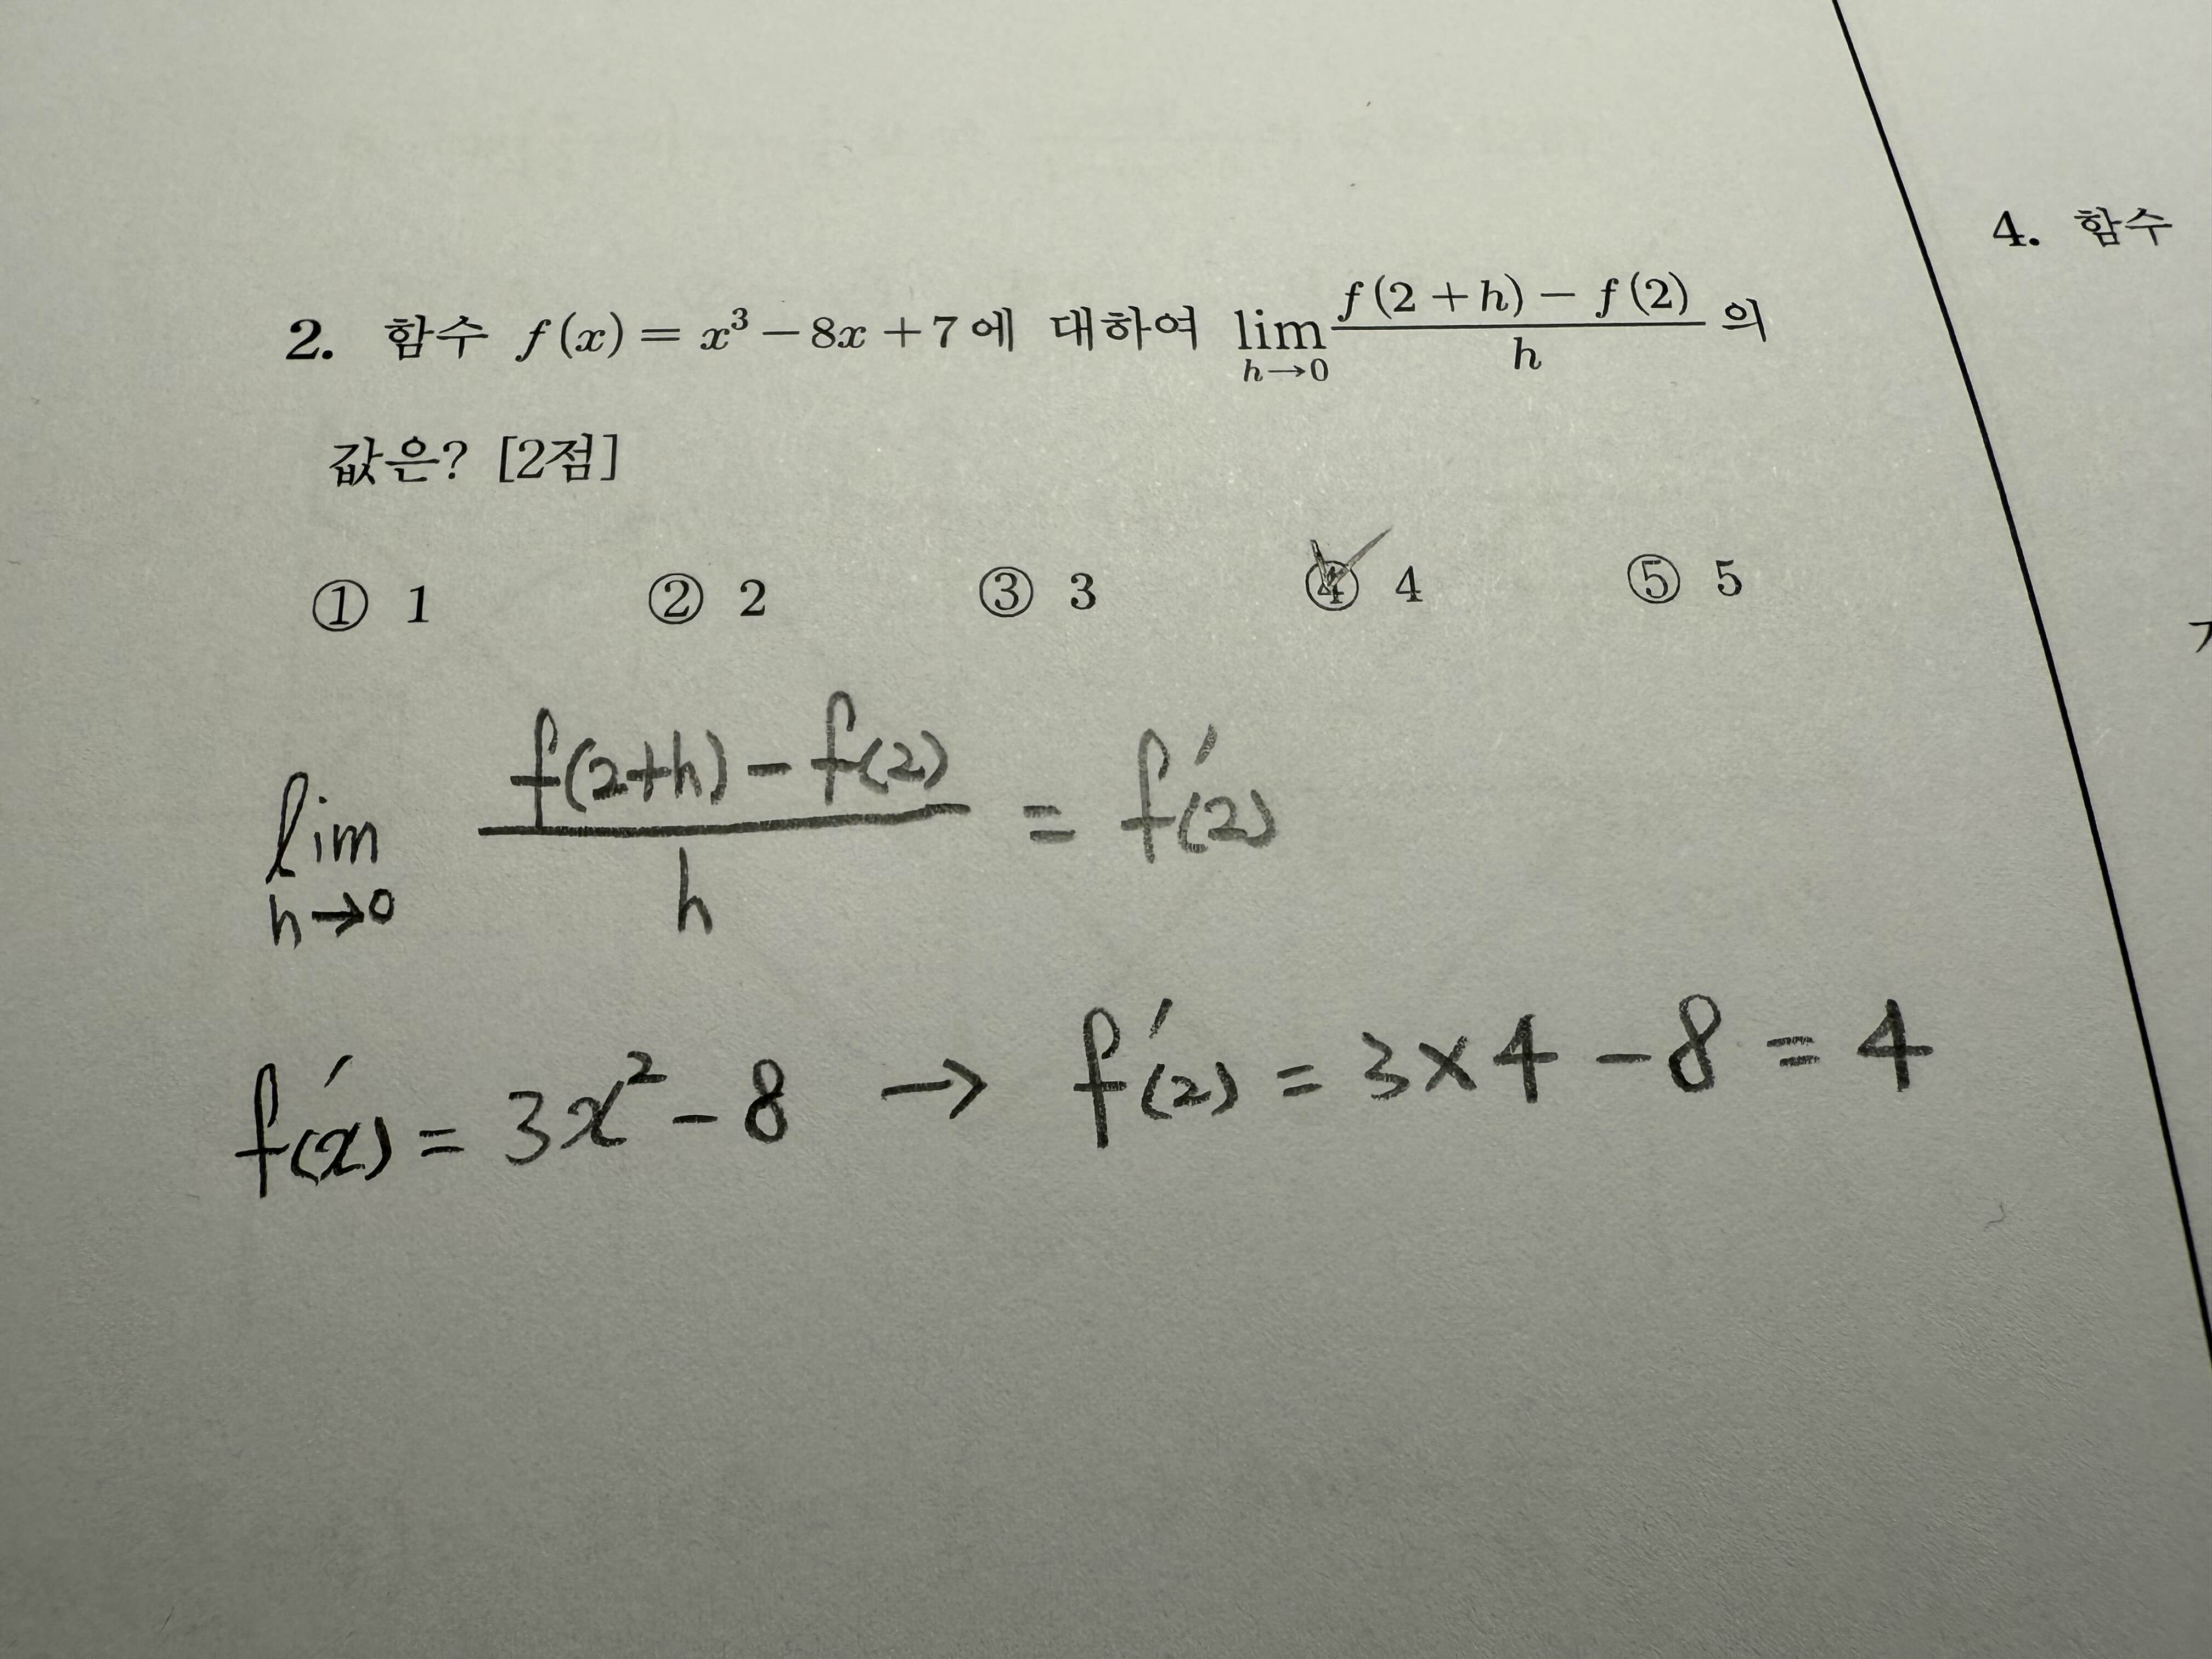 2. 함수 f(x) = x³ − 8x + 7에 대하여 lim_{h→0} \frac{f(2+h) − f(2)}{h} 의
값은? [2점]
① 1 ② 2 ③ 3 ④ 4 ⑤ 5
lim_{h→0} \frac{f(2+h) − f(2)}{h} = f′(2)
f′(x) = 3x² − 8 → f′(2) = 3×4 − 8 = 4
4. 함수